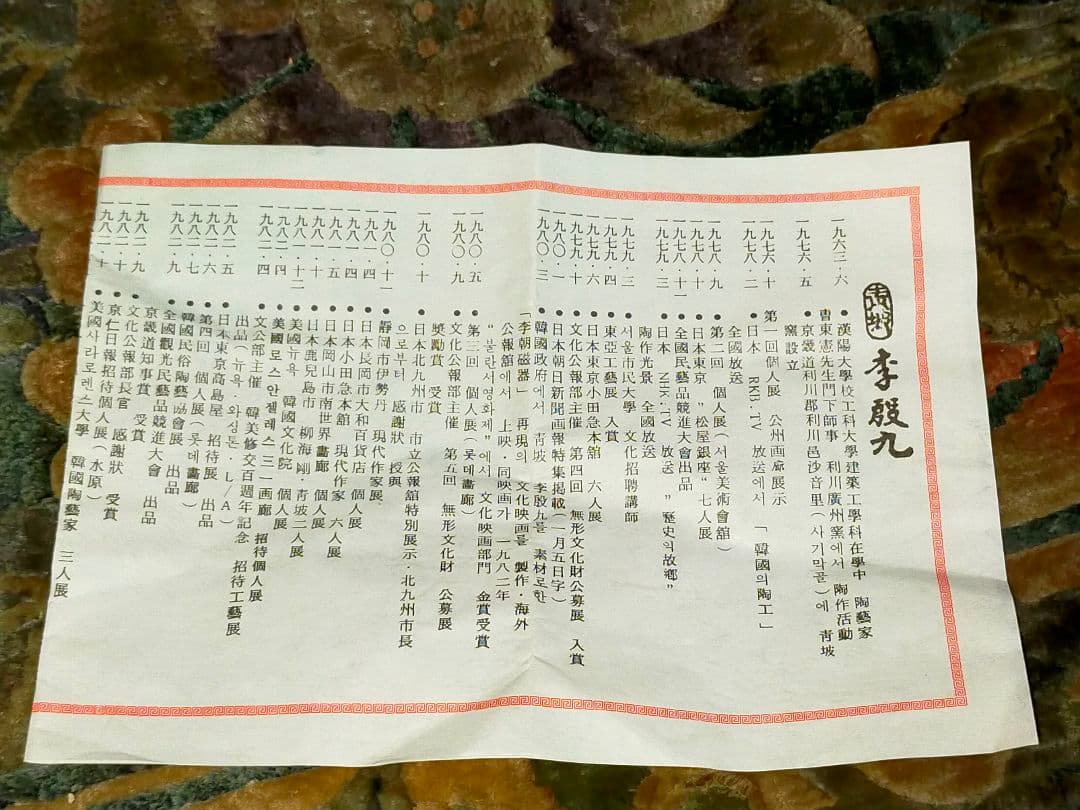 青坡 李殷九
一九六三・六 ● 漢陽大學校工科大學建築工學科在學中 陶藝家
曺東憲先生門下師事 利川廣州窯에서 陶作活動
一九七六・五 ● 京畿道利川郡利川邑沙音里(사기막골)에 靑坡
窯設立
一九七六・十 第一回個人展 公州画廊展示
一九七八・二 ● 日本 RKB.TV 放送에서 「韓國의陶工」
全國放送
一九七八・九 ● 第二回 個人展(서울美術會舘)
一九七八・十 ● 日本東京 "松屋銀座"七人展
一九七八・十一 ● 全國民藝品競進大會出品
一九七九・三 ● 日本 NHK.TV 放送 "歷史의故鄕"
陶作光景 全國放送
一九七九・三 ● 서울市民大學 文化招聘講師
一九七九・四 ● 東亞工藝展 入賞
一九七九・六 ● 日本東京小田急本舘 六人展
一九七九・十 ● 文化公報部主催 第四回 無形文化財公募展 入賞
一九八〇・一 ● 日本朝日新聞画報特集掲載(一月五日字)
一九八〇・三 ● 韓國政府에서 靑坡 李殷九를 素材로한
「李朝磁器」 再現의 文化映画를 製作・海外
公報舘에서 上映・同映画가 一九八二年
"불란서영화제"에서 文化映画部門 金賞受賞
一九八〇・五 ● 第三回 個人展(롯데畵廊)
一九八〇・九 ● 文化公報部主催 第五回 無形文化財 公募展
奬勵賞 受賞
一九八〇・十 ● 日本北九州市 市立公報舘特別展示・北九州市長
으로부터 感謝狀 授與
一九八〇・十一 ● 靜岡市伊勢丹 現代作家展
一九八一・四 ● 日本長岡市大和百貨店 個人展
一九八一・四 ● 日本小田急本舘 現代作家 六人展
一九八一・五 ● 日本岡山市南世界畵廊 個人展
一九八一・十 ● 日本鹿兒島市 柳海剛・靑坡二人展
一九八一・十二 ● 美國뉴욕 韓國文化院 個人展
一九八二・四 ● 美國로스안젤레스三一画廊 招待個人展
一九八二・四 ● 文公部主催 韓美修交百週年記念 招待工藝展
出品(뉴욕 와싱톤 L/A)
一九八二・五 ● 日本東京高島屋 招待展 出品
一九八二・六 ● 第四回 個人展(롯데畵廊)
一九八二・七 ● 韓國民俗陶藝協會展 出品
一九八二・九 ● 全國觀光民藝品競進大會 出品
京畿道知事賞 受賞
一九八二・九 ● 文化公報部長官 感謝狀 受賞
一九八二・十 ● 京仁日報招待個人展(水原)
一九八二・十 ● 美國사라로렌스大學 韓國陶藝家 三人展